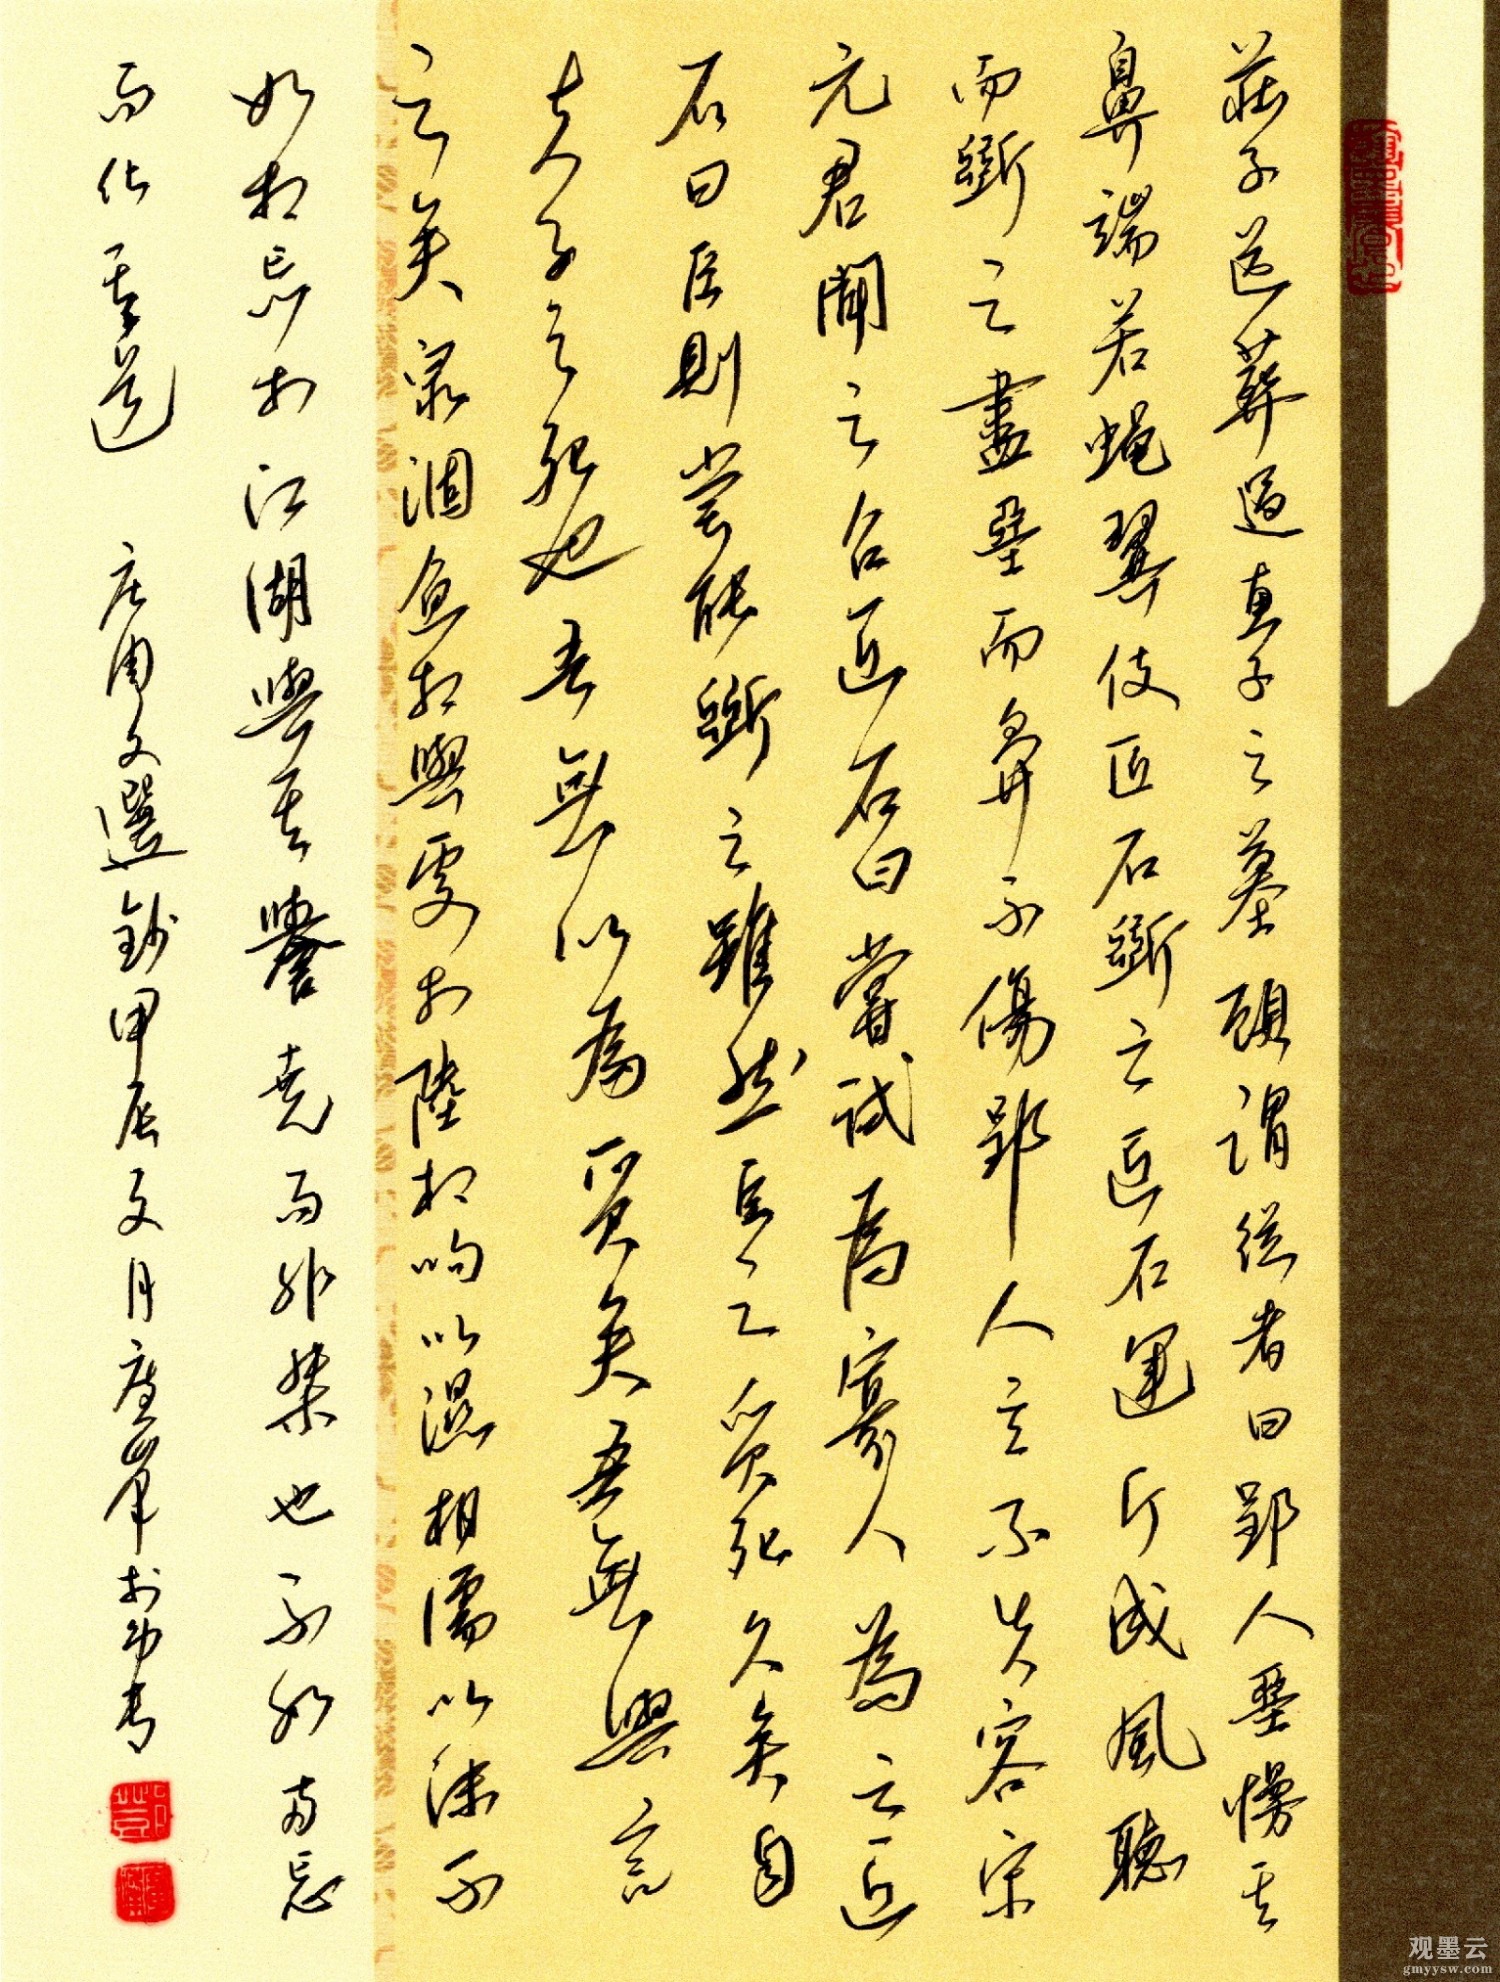 莊子送葬過惠子之墓顧謂從者曰郢人堊慢其
鼻端若蝇翼使匠石斲之匠石運斤成風聽
而斲之盡堊而鼻不傷郢人立不失容宋
元君聞之召匠石曰嘗試為寡人為之匠
石曰臣則嘗能斲之雖然臣之質死久矣自
夫子之死也吾無以為質矣吾無與言
之矣泉涸魚相與處於陸相呴以濕相濡以沫不
如相忘於江湖與其譽堯而非桀也不如兩忘
而化其道 庄周文選鈔甲辰文月 於
观墨云
gmyysw.com